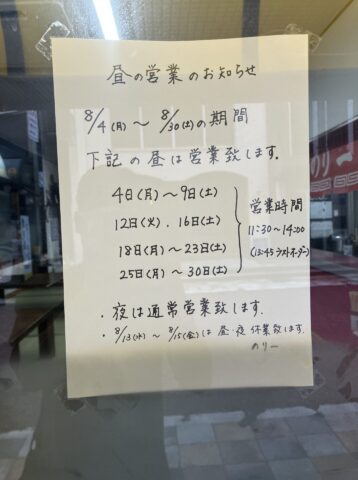 昼の営業のお知らせ
8/4(月)～8/30(土)の期間
下記の昼は営業致します.
4日(月)～9日(土)
12日(火).16日(土)
18日(月)～23日(土)
25日(月)～30日(土)
営業時間
11:30～14:00
(13:45ラストオーダー)
・夜は通常営業致します.
・8/13(水)～8/15(金)は昼・夜休業致します
のりー
のりー